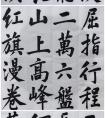 屈指行程
二萬六盤
山上高峰
紅旗漫卷